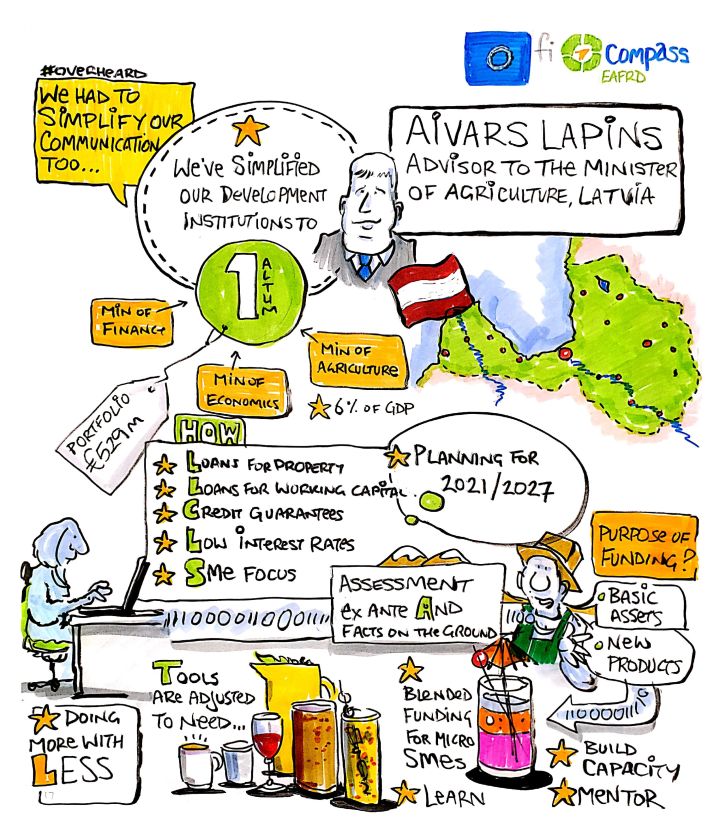 fi Compass
EAFRD
#OVERHEARD
WE HAD TO
SIMPLIFY OUR
COMMUNICATION
TOO...
WE'VE SIMPLIFIED
OUR DEVELOPMENT
INSTITUTIONS TO
1 ALTUM
AIVARS LAPINS
ADVISOR TO THE MINISTER
OF AGRICULTURE, LATVIA
MIN OF
FINANCE
MIN OF
ECONOMICS
MIN OF
AGRICULTURE
6% OF GDP
PORTFOLIO
€529M
HOW
LOANS FOR PROPERTY
LOANS FOR WORKING CAPITAL
CREDIT GUARANTEES
LOW INTEREST RATES
SME FOCUS
PLANNING FOR
2021/2027
ASSESSMENT
EX ANTE AND
FACTS ON THE GROUND
PURPOSE OF
FUNDING?
BASIC
ASSETS
NEW
PRODUCTS
DOING
MORE WITH
LESS
TOOLS
ARE ADJUSTED
TO NEED...
BLENDED
FUNDING
FOR MICRO
SMES
LEARN
BUILD
CAPACITY
MENTOR